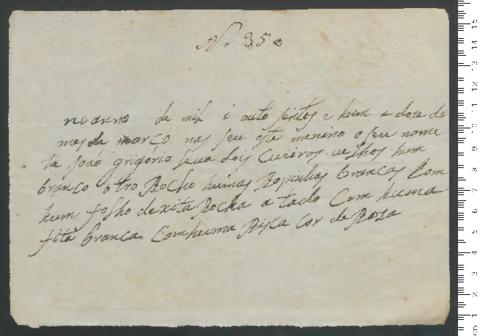 N. 350
no anno de mil i outo sentos e hum a doze do
mes de março nas seu este menino o seu nome
he João grigorio leva dois Cueiros velhos hum
branco outro Rocho humas Roupinhas brancas Com
hum folho de xita Rocha a tado Com huma
fita branca Com huma Risca Cor de Roza